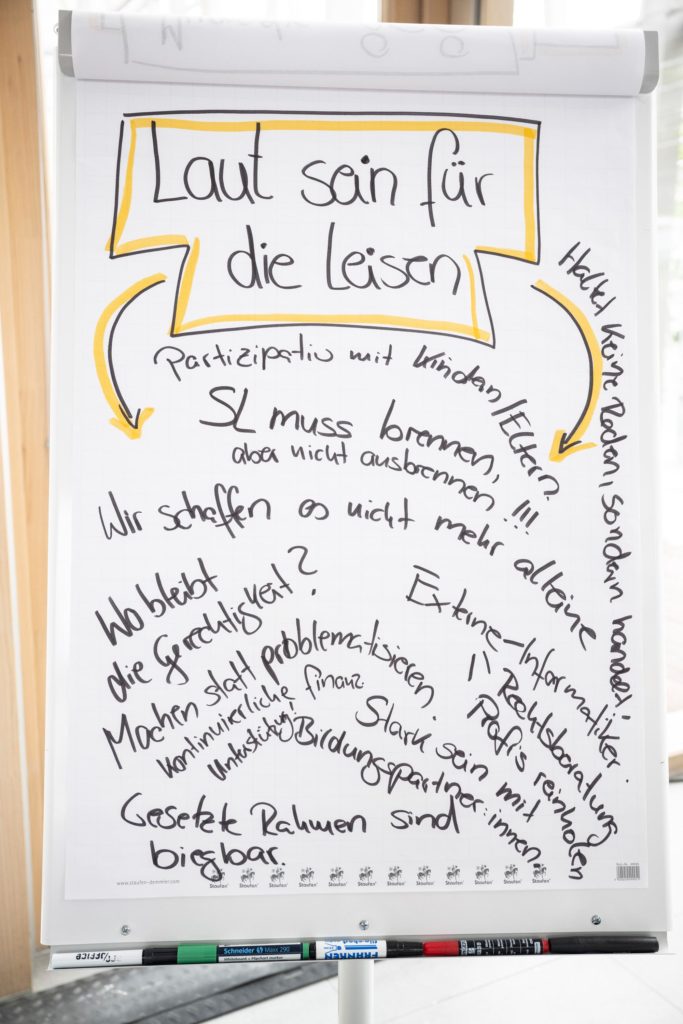 Laut sein für
die Leisen
Partizipativ mit Kindern/Eltern.
Haltet keine Reden, sondern handelt!
SL muss brennen,
aber nicht ausbrennen !!!
Wir schaffen es nicht mehr alleine
Wo bleibt
die Gerechtigkeit?
Externe-Informatiker.
Rechtsberatung
Profis reinholen
Machen statt problematisieren.
Kontinuierliche finanz.
Unterstützung!
Stark sein mit
Bildungspartner:innen.
Gesetzte Rahmen sind
biegbar.
www.staufen-demmler.com
Staufen Staufen Staufen Staufen Staufen Staufen Staufen Staufen Staufen Staufen Staufen Staufen
OFFICE
Schneider Maxx 290
FRANKEN